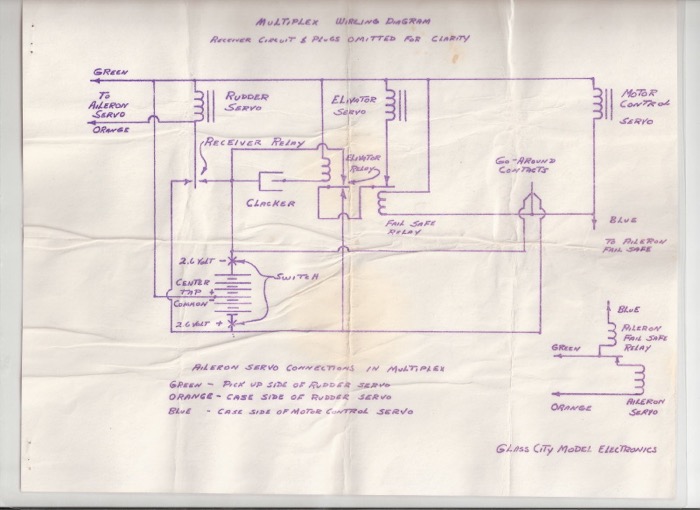 MULTIPLEX WIRLING DIAGRAM
RECEIVER CIRCUIT & PLUGS OMITTED FOR CLARITY
GREEN
TO
AILERON
SERVO
ORANGE
RUDDER
SERVO
ELIVATOR
SERVO
MOTOR
CONTROL
SERVO
RECEIVER RELAY
ELIVATOR
RELAY
GO-AROUND
CONTACTS
CLACKER
FAIL SAFE
RELAY
BLUE
TO AILERON
FAIL SAFE
2.6 VOLT -
SWITCH
CENTER
TAP +
COMMON -
2.6 VOLT +
BLUE
AILERON
FAIL SAFE
RELAY
GREEN
ORANGE
AILERON
SERVO
AILERON SERVO CONNECTIONS IN MULTIPLEX
GREEN - PICK UP SIDE OF RUDDER SERVO
ORANGE - CASE SIDE OF RUDDER SERVO
BLUE - CASE SIDE OF MOTOR CONTROL SERVO
GLASS CITY MODEL ELECTRONICS